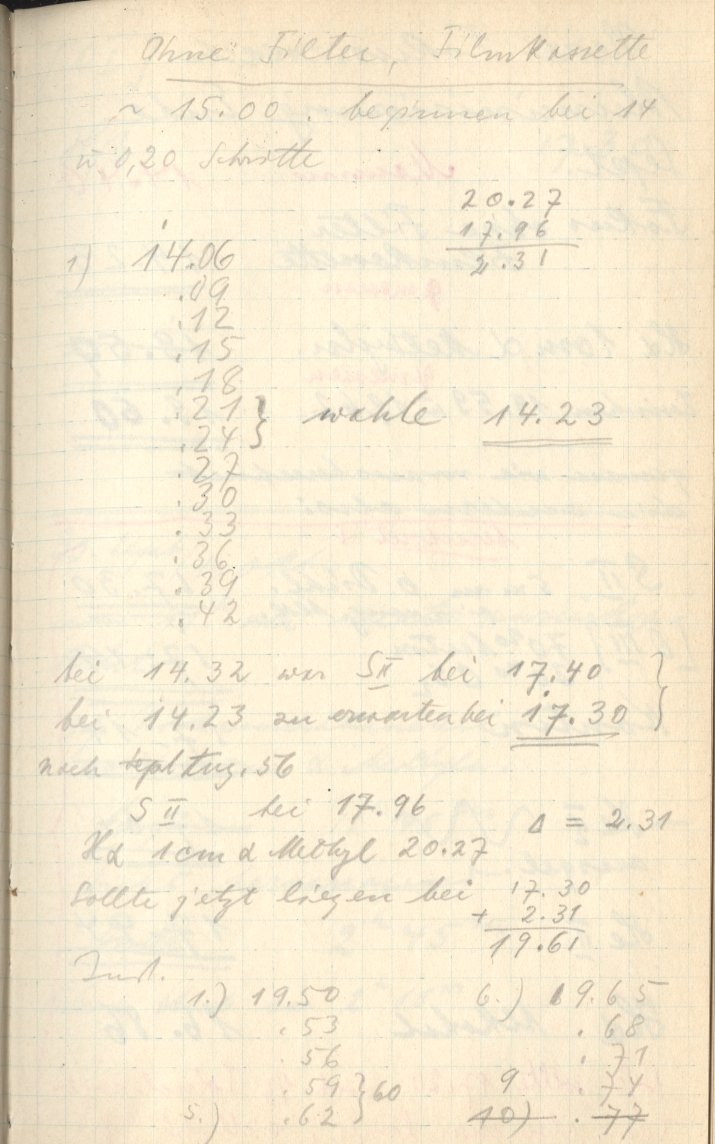 Ohne Filter, Filmkassette
~ 15.00. beginnen bei 14
in 0,20 Schritte
20.27
17.96
2.31
1) 14.06
.09
.12
.15
.18
.21 } wähle 14.23
.24
.27
.30
.33
.36
.39
.42
bei 14.32 war S II bei 17.40
bei 14.23 zu erwarten bei 17.30
nach Aug. 56
S II bei 17.96 Δ = 2.31
Hα 1cm α Methyl 20.27
Sollte jetzt liegen bei 17.30
+ 2.31
19.61
1.) 19.50
.53
56
.59 } 60
5.) .62
6.) 19.65
.68
.71
9 .74
10) .77